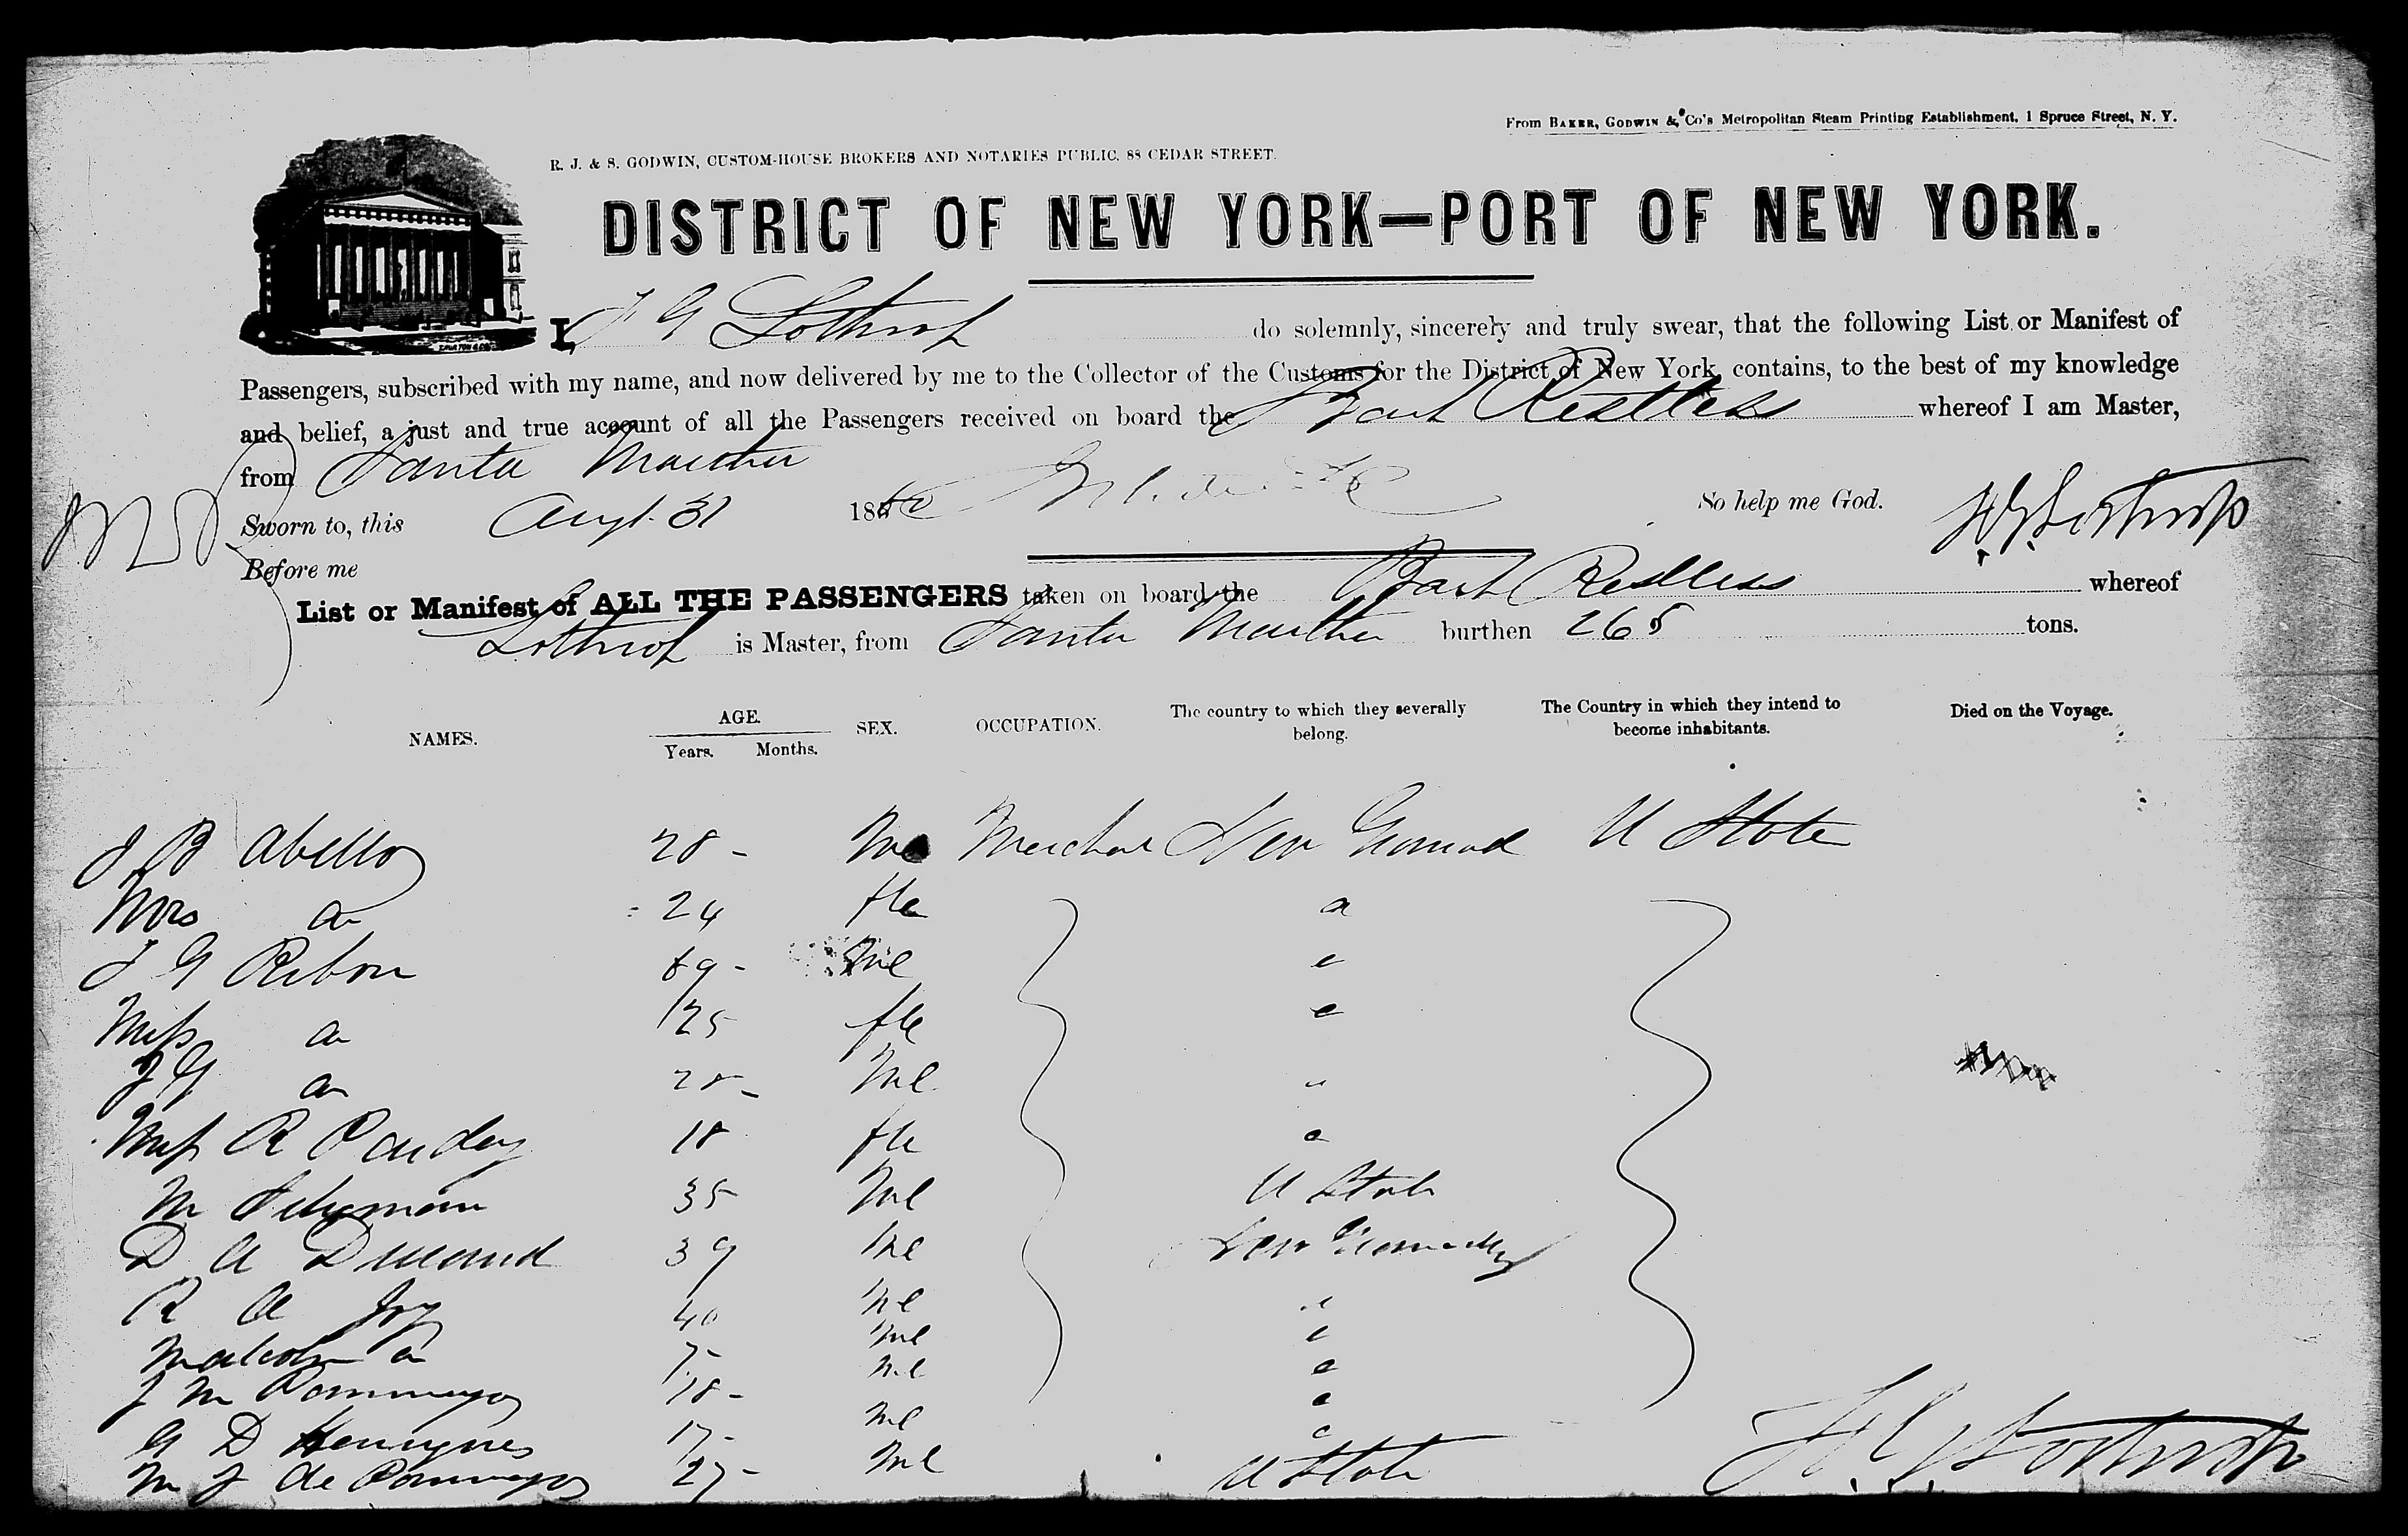 From BAKER, GODWIN & Co's Metropolitan Steam Printing Establishment, 1 Spruce Street, N. Y.
R. J. & S. GODWIN, CUSTOM-HOUSE BROKERS AND NOTARIES PUBLIC, 88 CEDAR STREET.
DISTRICT OF NEW YORK—PORT OF NEW YORK.
I, G Lothrop do solemnly, sincerely and truly swear, that the following List or Manifest of
Passengers, subscribed with my name, and now delivered by me to the Collector of the Customs for the District of New York, contains, to the best of my knowledge
and belief, a just and true account of all the Passengers received on board the Bark Restless whereof I am Master,
from Santa Martha
Sworn to, this Augt 31 18 So help me God.
Before me
List or Manifest of ALL THE PASSENGERS taken on board the Bark Restless whereof
Lothrop is Master, from Santa Martha burthen 265 tons.
NAMES. AGE. Years. Months. SEX. OCCUPATION. The country to which they severally belong. The Country in which they intend to become inhabitants. Died on the Voyage.
J B Abello 28 - Me Merchat New Granad U State
Mrs 24 fle
J G Ribon 69 - Me
Miss 25 fle
J G 28 - Me
Miss R 18 fle
M 35 Me U State
D A 39 Me New
R A Joy 40 Me
Malcolm 7 - Me
J M 18 - Me
G D Henriques 17 - Me
M J de 27 - Me U State